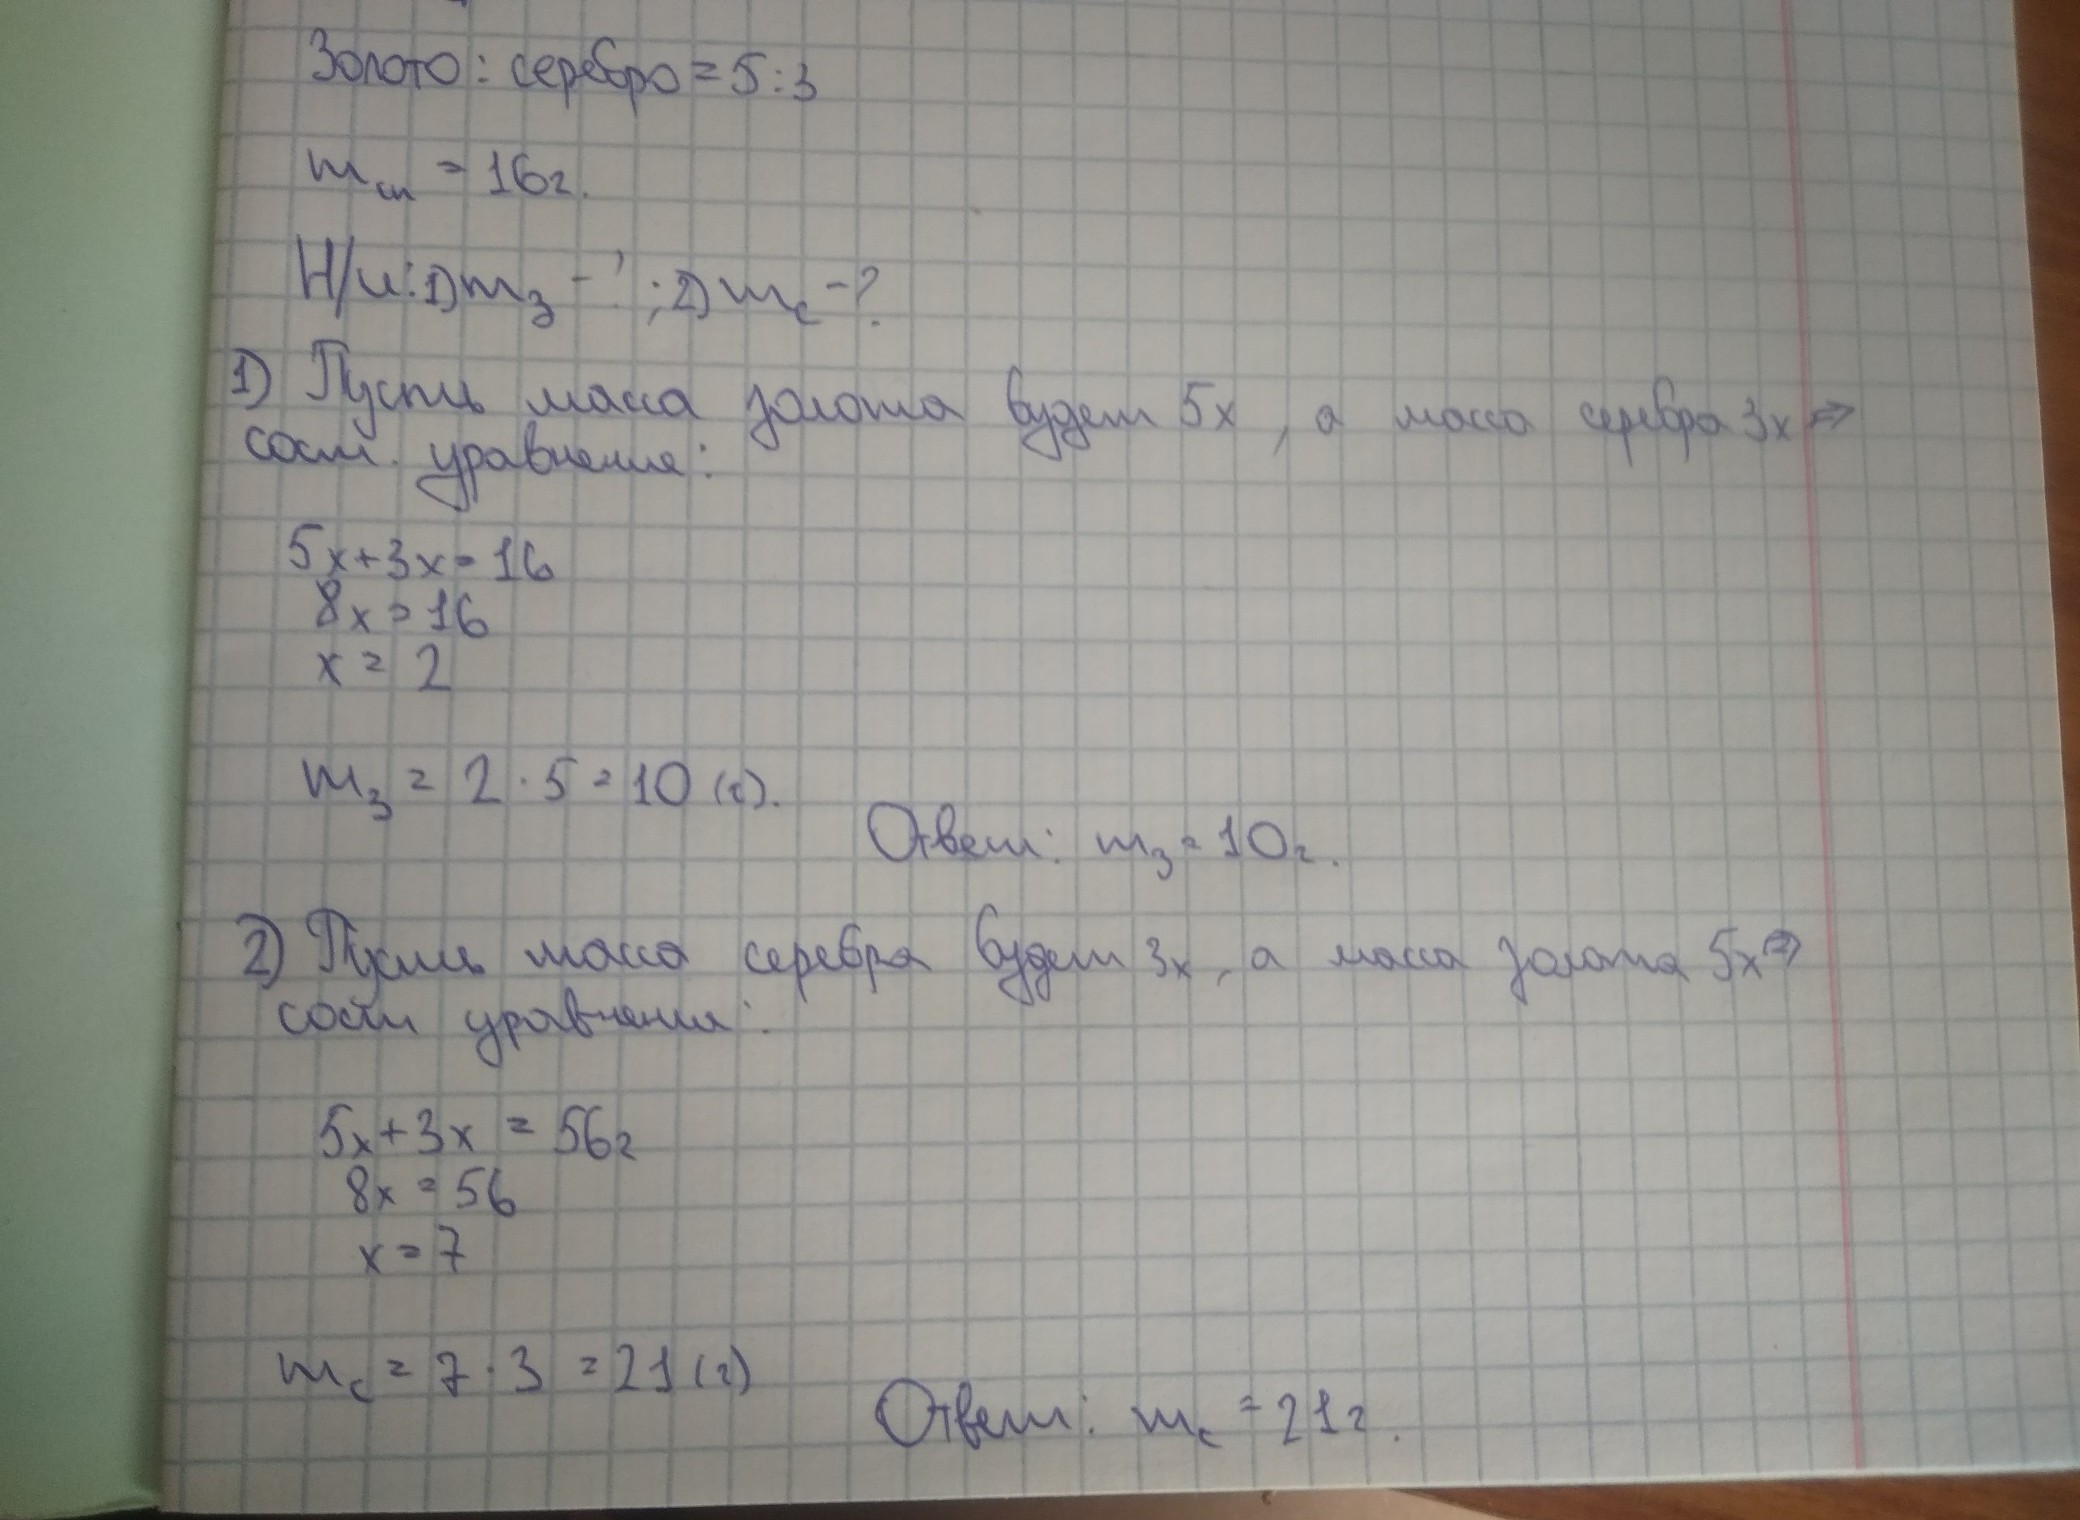 Золото : серебро = 5:3
mсп = 16г.
Н/и: 1) mз - ? ; 2) mс - ?
1) Пусть масса золота будет 5x, а масса серебра 3x ⇒
сост. уравнение:
5x+3x=16
8x=16
x = 2
mз = 2 · 5 = 10 (г).
Ответ: mз = 10г.
2) Пусть масса серебра будет 3x, а масса золота 5x ⇒
сост уравнение:
5x+3x = 56г
8x = 56
x = 7
mс = 7 · 3 = 21 (г)
Ответ: mс = 21г.